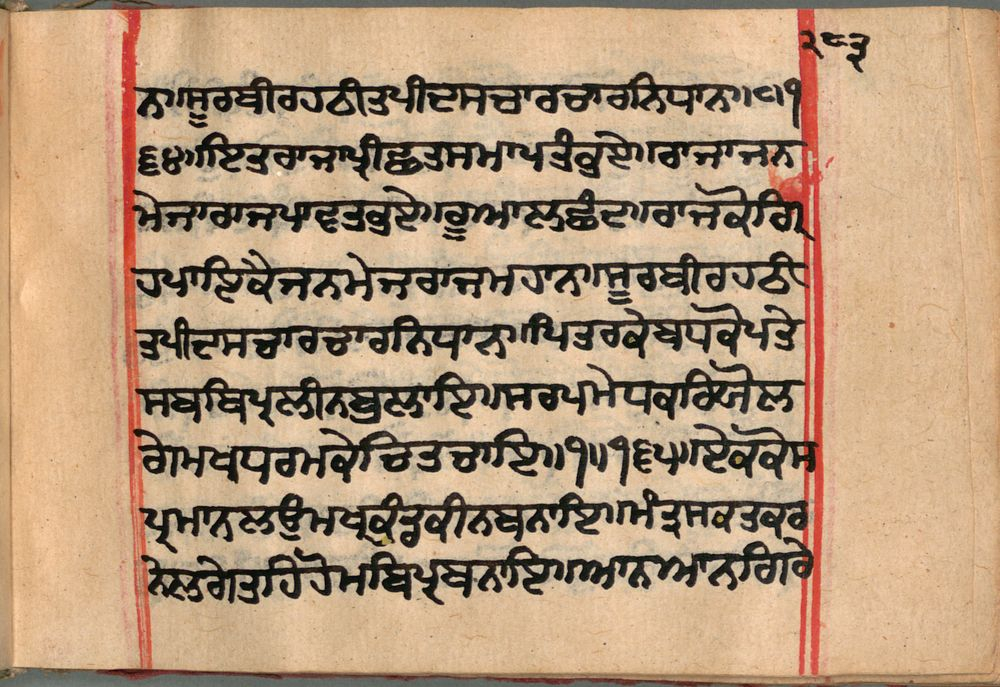 ੨੮੩
ਨ॥ਸੂਰਬੀਰਹਠੀਤਪੀਦਸਚਾਰਚਾਰਨਿਧਾਨ॥੮॥੧
੬੪॥ਇਤੁਰਾਜਾਪ੍ਰੀਛਤਸਮਾਪਤੰਭੁਏ॥ਰਾਜਾਜਨ
ਮੇਜਾਰਾਜਪਾਵਤਭੁਏ॥ਰੂਆਲਛੰਦ॥ਰਾਜਕੋਗ੍ਰਿ
ਹਪਾਇਕੈਜਨਮੇਜਰਾਜਮਹਾਨ॥ਸੂਰਬੀਰਹਠੀ
ਤਪੀਦਸਚਾਰਚਾਰਨਿਧਾਨ॥ਪਿਤਰਕੇਬਧਕੋਪਤੇ
ਸਬਬਿਪ੍ਰਲੀਨਬੁਲਾਇ॥ਸਰਪਮੇਧਕਰਿਯੋਲ
ਗੇਮਖਧਰਮਕੇਚਿਤਚਾਇ॥੧॥੧੬੫॥ਏਕਕੋਸ
ਪ੍ਰਮਾਨਲਉਮਖਕੁੰਤਕੀਨਬਨਾਇ॥ਮੰਤ੍ਰਸਕਤਕਰ
ਨੇਲਗੇਤਹਿਹੋਮਬਿਪ੍ਰਬਨਾਇ॥ਆਨਆਨਗਿਰੇ